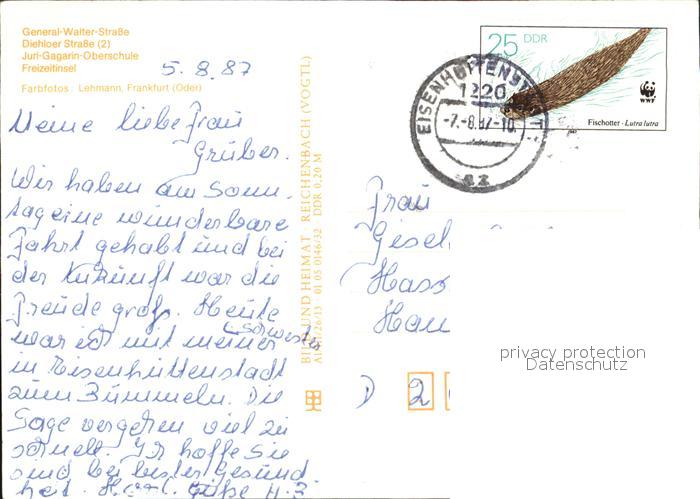 General-Walter-Straße
Diehloer Straße (2)
Juri-Gagarin-Oberschule
Freizeitinsel
Farbfotos: Lehmann, Frankfurt (Oder)
5.8.87
Meine liebe Frau
Grüber.
Wir haben am Sonn-
tag eine wunderbare
Fahrt gehabt und bei
der Ankunft war die
Freude groß. Heute
war ich mit meiner
Schwester
in Eisenhüttenstadt
zum Bummeln. Die
Tage vergehen viel zu
schnell. Ich hoffe Sie
sind bei bester Gesund-
heit. Herzl. Grüße H. B.
BILD UND HEIMAT · REICHENBACH (VOGTL)
01 05 0146/32 · DDR 0,20 M
25 DDR
WWF
Fischotter · Lutra lutra
EISENHÜTTENSTADT
1220
-7.-8.87-10
Frau
Gisel
Hass
Hau
D 2
privacy protection
Datenschutz